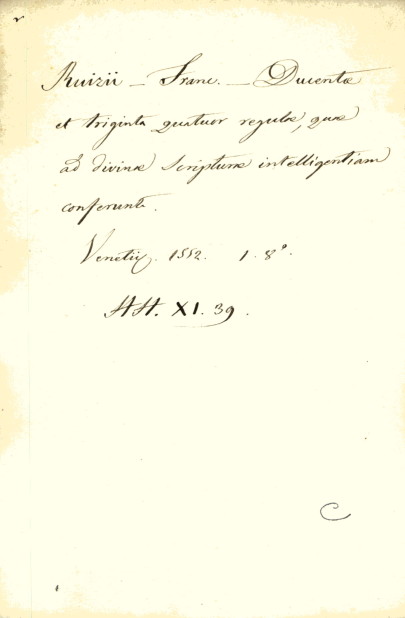 Ruizii _ Franc. _ Ducentæ
et triginta quatuor regulæ, quæ
ad divinæ Scripturæ intelligentiam
conferunt.
Venetiis. 1552. 1. 8º.
HH. XI. 39.
C